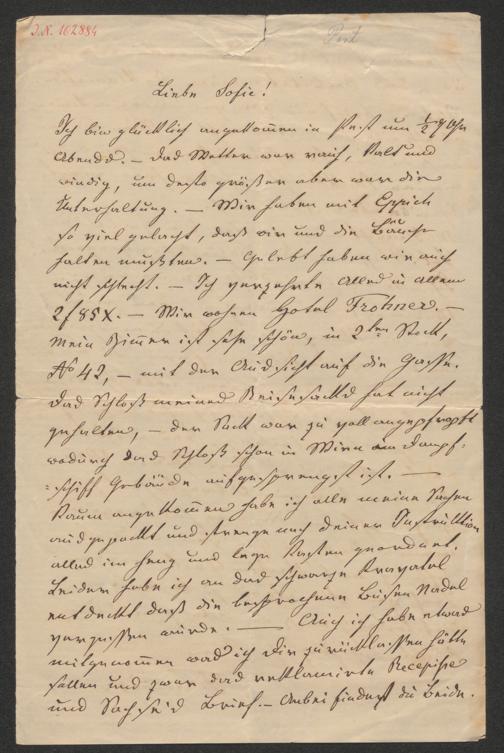 J.N. 162884
Pest
Liebe Sofie!
Ich bin glücklich angekommen in Pest um ½ 9 Uhr
Abends. — Das Wetter war rauh, kalt und
windig, um desto größer aber war die
Unterhaltung. — Wir haben mit Eppich
so viel gelacht, daß wir uns die Bäuche
halten mußten. — Gelebt haben wir auch
nicht schlecht. — Ich verzehrte Alles in Allem
2 f 85 x. — Wir wohnen Hotel Frohner. —
Mein Zimmer ist sehr schön, in 2ten Stock,
No 42, — mit der Aussicht auf die Gasse.
Das Schloß meines Reisesacks hat nicht
gehalten, — der Sack war zu voll angepfropft
wodurch das Schloß schon in Wien am Dampf-
=schiff Gebäude aufgesprengt ist. —
Kaum angekommen habe ich alle meine Sachen
ausgepackt und strenge nach deiner Instruktion
alles im Heng und lege Kasten geordnet.
Leider habe ich an das schwarze Kravatel
entdeckt daß die besprochene Busen Nadel
vergessen wurde. — Auch ich habe etwas
mitgenommen was ich Dir zurücklassen hätte
sollen und zwar das reklamirte Recepisse
und Brief. — Anbei findest du Beide.